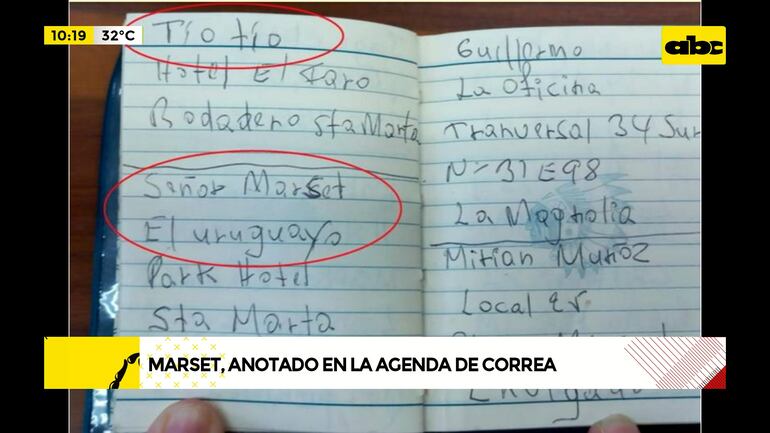 10:19 32°C
abc
Tio tio
Hotel El Faro
Rodadero Sta Marta
Señor Marset
El uruguayo
Park Hotel
Sta Marta
Guillermo
La Oficina
Tranversal 34 Sur
N- 31 E 98
La Magnolia
Mirian Muñoz
Local
Envigado
MARSET, ANOTADO EN LA AGENDA DE CORREA